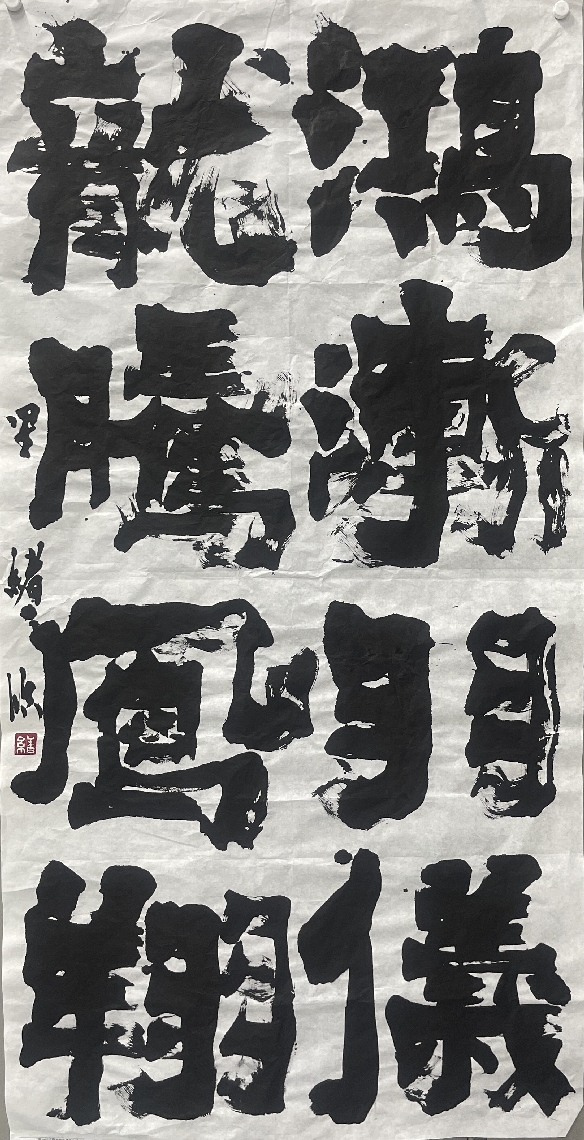 鴻漸羽儀
龍騰鳳翔
緒